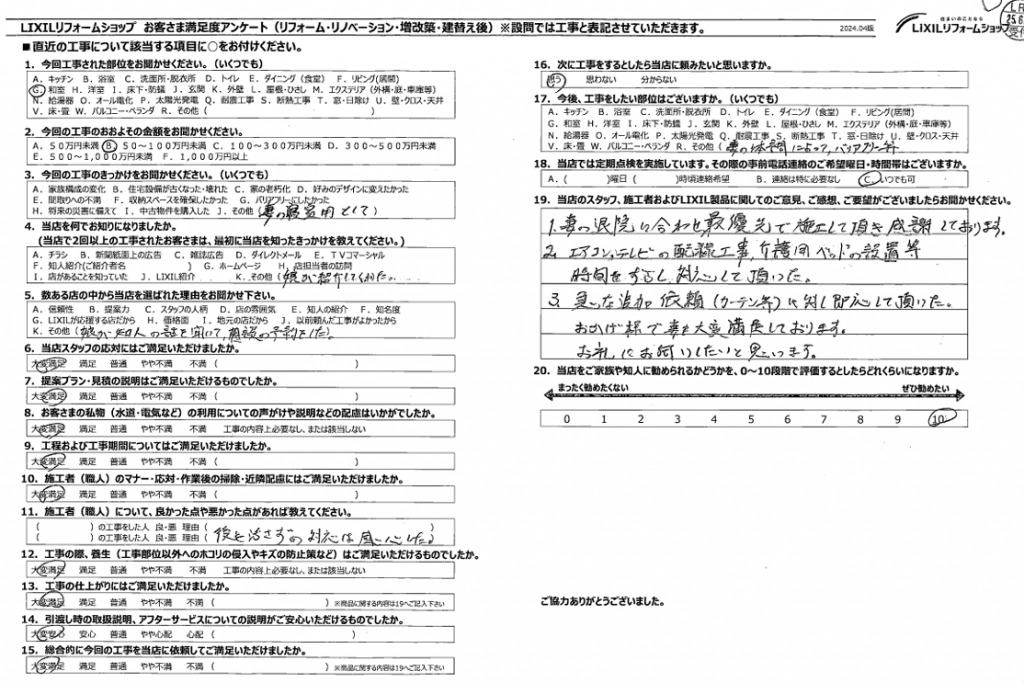 LIXILリフォームショップ お客さま満足度アンケート（リフォーム・リノベーション・増改築・建替え後）※設問では工事と表記させていただきます。
2024.04版
住まいのことなら
LIXILリフォームショップ
■直近の工事について該当する項目に○をお付けください。
1．今回工事された部位をお聞かせください。（いくつでも）
A．キッチン B．浴室 C．洗面所・脱衣所 D．トイレ E．ダイニング（食堂） F．リビング（居間）
G．和室 H．洋室 I．床下・防蟻 J．玄関 K．外壁 L．屋根・ひさし M．エクステリア（外構・庭・車庫等）
N．給湯器 O．オール電化 P．太陽光発電 Q．耐震工事 S．断熱工事 T．窓・日除け U．壁・クロス・天井
V．床・畳 W．バルコニー・ベランダ R．その他（ ）
2．今回の工事のおおよその金額をお聞かせください。
A．50万円未満 B．50～100万円未満 C．100～300万円未満 D．300～500万円未満
E．500～1,000万円未満 F．1,000万円以上
3．今回の工事のきっかけをお聞かせください。（いくつでも）
A．家族構成の変化 B．住宅設備が古くなった・壊れた C．家の老朽化 D．好みのデザインに変えたかった
E．間取りへの不満 F．収納スペースを確保したかった G．バリアフリーにしたかった
H．将来の災害に備えて I．中古物件を購入した J．その他（妻の寝室用として）
4．当店を何でお知りになりましたか。
（当店で2回以上の工事されたお客さまは、最初に当店を知ったきっかけを教えてください。）
A．チラシ B．新聞紙面上の広告 C．雑誌広告 D．ダイレクトメール E．TVコマーシャル
F．知人紹介（ご紹介者名 ） G．ホームページ H．店担当者の訪問
I．店があることを知っていた J．LIXIL紹介 K．その他（娘が紹介してくれた。
5．数ある店の中から当店を選ばれた理由をお聞かせ下さい。
A．信頼性 B．提案力 C．スタッフの人柄 D．店の雰囲気 E．知人の紹介 F．知名度
G．LIXILが応援する店だから H．価格面 I．地元の店だから J．以前頼んだ工事がよかったから
K．その他（娘が知人の話を聞いて,相談の予約をした。）
6．当店スタッフの応対にはご満足いただけましたか。
大変満足 満足 普通 やや不満 不満（ ）
7．提案プラン・見積の説明はご満足いただけるものでしたか。
大変満足 満足 普通 やや不満 不満（ ）
8．お客さまの私物（水道・電気など）の利用についての声がけや説明などの配慮はいかがでしたか。
大変満足 満足 普通 やや不満 不満 工事の内容上必要なし、または該当しない
9．工程および工事期間についてはご満足いただけましたか。
大変満足 満足 普通 やや不満 不満（ ）
10．施工者（職人）のマナー・応対・作業後の掃除・近隣配慮にはご満足いただけましたか。
大変満足 満足 普通 やや不満 不満（ ）
11．施工者（職人）について、良かった点や悪かった点があれば教えてください。
（ ）の工事をした人 良・悪 理由（ ）
（ ）の工事をした人 良・悪 理由（ 後を汚さずの対応は感心した）
12．工事の際、養生（工事部位以外へのホコリの侵入やキズの防止策など）はご満足いただけるものでしたか。
大変満足 満足 普通 やや不満 不満 工事の内容上必要なし、または該当しない
13．工事の仕上がりにはご満足いただけましたか。
大変満足 満足 普通 やや不満 不満（ ）※商品に関する内容は19へご記入下さい
14．引渡し時の取扱説明、アフターサービスについての説明がご安心いただけるものでしたか。
大変安心 安心 普通 やや心配 心配（ ）
15．総合的に今回の工事を当店に依頼してご満足いただけましたか。
大変満足 満足 普通 やや不満 不満（ ）※商品に関する内容は19へご記入下さい
16．次に工事をするとしたら当店に頼みたいと思いますか。
思う 思わない 分からない
17．今後、工事をしたい部位はございますか。（いくつでも）
A．キッチン B．浴室 C．洗面所・脱衣所 D．トイレ E．ダイニング（食堂） F．リビング（居間）
G．和室 H．洋室 I．床下・防蟻 J．玄関 K．外壁 L．屋根・ひさし M．エクステリア（外構・庭・車庫等）
N．給湯器 O．オール電化 P．太陽光発電 Q．耐震工事 S．断熱工事 T．窓・日除け U．壁・クロス・天井
V．床・畳 W．バルコニー・ベランダ R．その他（ 妻の によって,バリアフリー
18．当店では定期点検を実施しています。その際の事前電話連絡のご希望曜日・時間帯はございますか。
A．（ ）曜日（ ）時頃連絡希望 B．連絡は特に必要なし C．いつでも可
19．当店のスタッフ、施工者およびLIXIL製品に関してのご意見、ご感想、ご要望がございましたらお聞かせください。
1.妻の退院に合わせ最優先で施工して頂き感謝しております。
2.エアコン,テレビの配線工事,介護用ベッドの設置等
時間をずらし対応して頂いた。
3.急な追加依頼（カーテン等）に対し即応して頂いた。
おかげ様で妻も大変満足しております。
お礼にお伺いしたいと思います。
20．当店をご家族や知人に勧められるかどうかを、0～10段階で評価するとしたらどれくらいになりますか。
まったく勧めたくない ぜひ勧めたい
0 1 2 3 4 5 6 7 8 9 10
ご協力ありがとうございました。